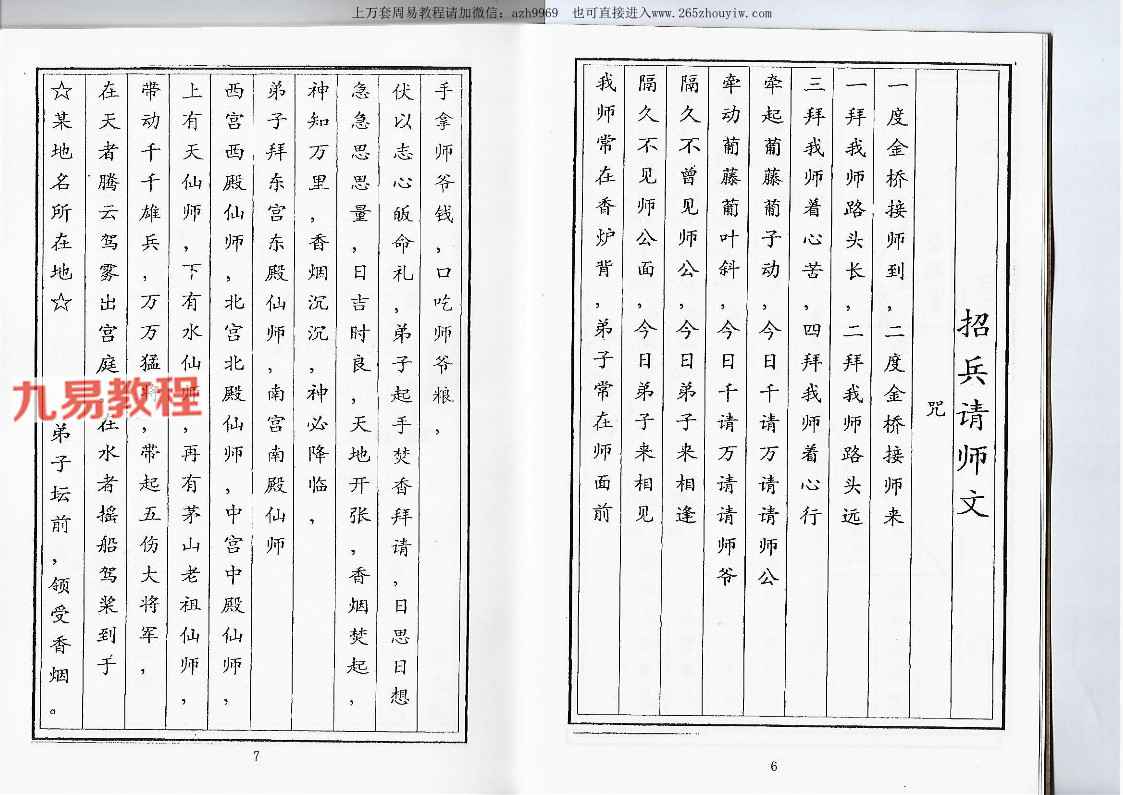 上万套周易教程请加微信：azh9969 也可直接进入www.265zhouyiw.com
招兵请师文
咒
一度金桥接师到，二度金桥接师来
一拜我师路头长，二拜我师路头远
三拜我师着心苦，四拜我师着心行
牵起葡藤葡子动，今日千请万请请师公
牵动葡藤葡叶斜，今日千请万请请师爷
隔久不曾见师公，今日弟子来相逢
隔久不见师公面，今日弟子来相见
我师常在香炉背，弟子常在师面前
6
手拿师爷钱，口吃师爷粮，
伏以志心皈命礼，弟子起手焚香拜请，日思日想
急急思思量，日吉时良，天地开张，香烟焚起，
神知万里，香烟沉沉，神必降临，
弟子拜东宫东殿仙师，南宫南殿仙师
西宫西殿仙师，北宫北殿仙师，中宫中殿仙师，
上有天仙师，下有水仙师，再有茅山老祖仙师，
带动千千雄兵，万万猛将，带起五伤大将军，
在天者腾云驾雾出宫庭，在水者摇船驾桨到于
☆某地名所在地☆弟子坛前，领受香烟。
7
九易教程